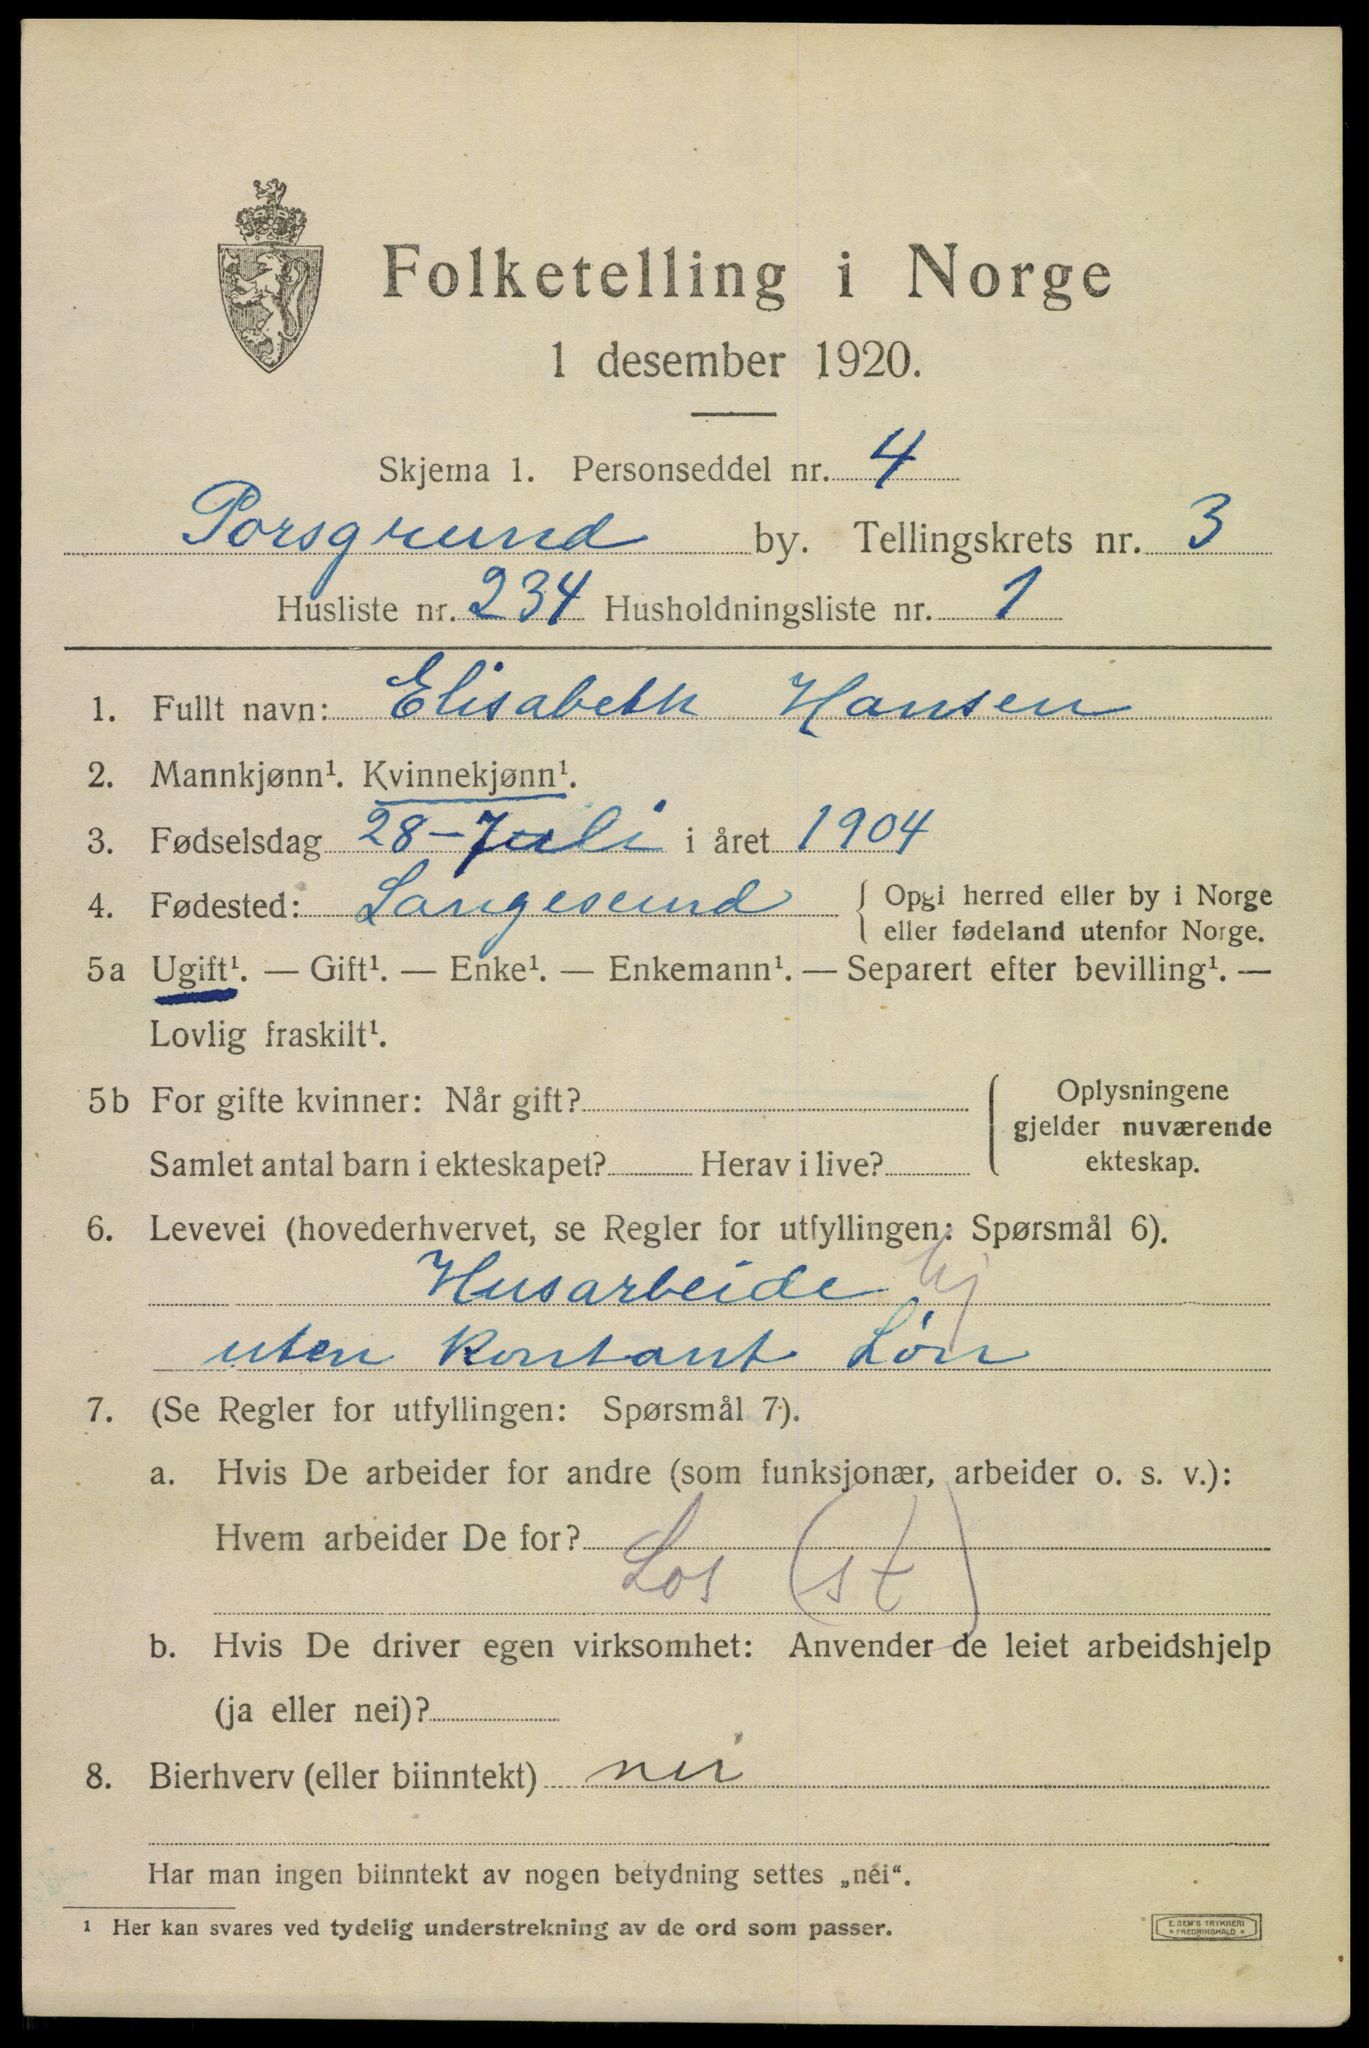 Folketelling i Norge
1 desember 1920.
Skjema 1. Personseddel nr. 4
Porsgrund by. Tellingskrets nr. 3
Husliste nr. 234 Husholdningsliste nr. 1
1. Fullt navn: Elisabeth Hansen
2. Mannkjønn¹. Kvinnekjønn¹.
3. Fødselsdag 28-Juli i året 1904
4. Fødested: Langesund { Opgi herred eller by i Norge
eller fødeland utenfor Norge.
5a Ugift¹. — Gift¹. — Enke¹. — Enkemann¹. — Separert efter bevilling¹. —
Lovlig fraskilt¹.
5b For gifte kvinner: Når gift? { Oplysningene
gjelder nuværende
Samlet antal barn i ekteskapet? Herav i live? ekteskap.
6. Levevei (hovederhvervet, se Regler for utfyllingen: Spørsmål 6).
Husarbeide hj
uten kontant Løn
7. (Se Regler for utfyllingen: Spørsmål 7).
a. Hvis De arbeider for andre (som funksjonær, arbeider o. s. v.):
Hvem arbeider De for?
Los (st)
b. Hvis De driver egen virksomhet: Anvender de leiet arbeidshjelp
(ja eller nei)?
8. Bierhverv (eller biinntekt) nei
Har man ingen biinntekt av nogen betydning settes „nei“.
¹ Her kan svares ved tydelig understrekning av de ord som passer.
E. SEM'S TRYKKERI
* FREDRIKSHALD *